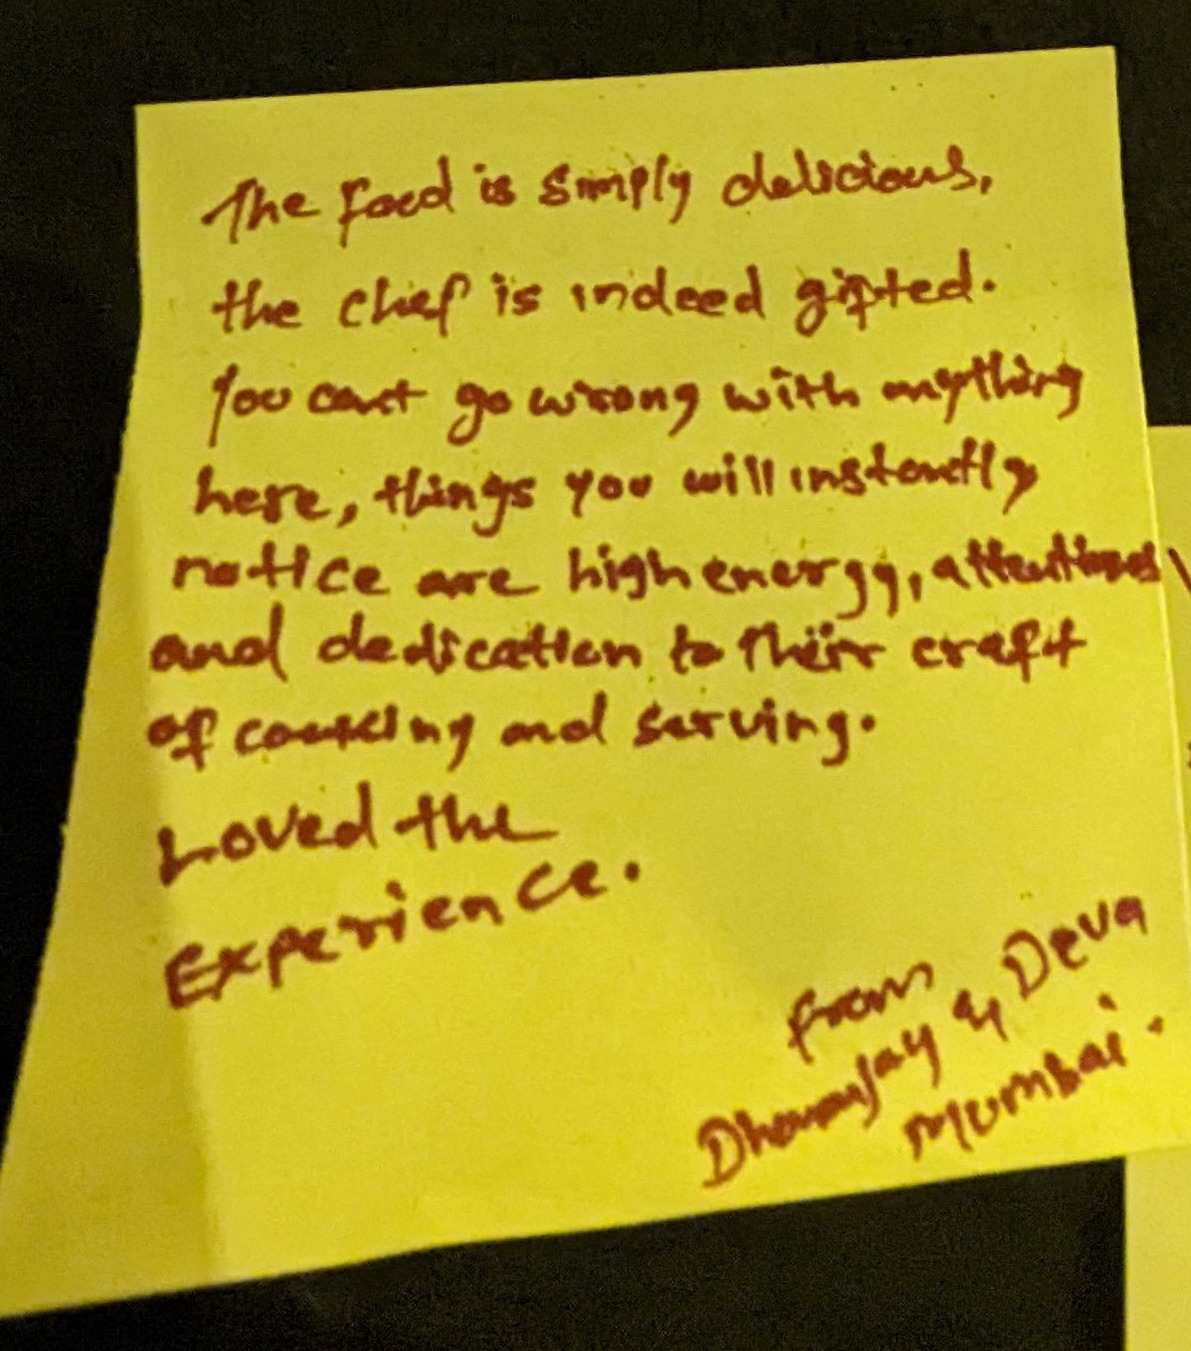 The food is simply delicious,
the chef is indeed gifted.
You cant go wrong with anything
here, things you will instantly
notice are high energy, attentions
and dedication to their craft
of cooking and serving.
Loved the
Experience.
from
Dhananjay & Deva
Mumbai.